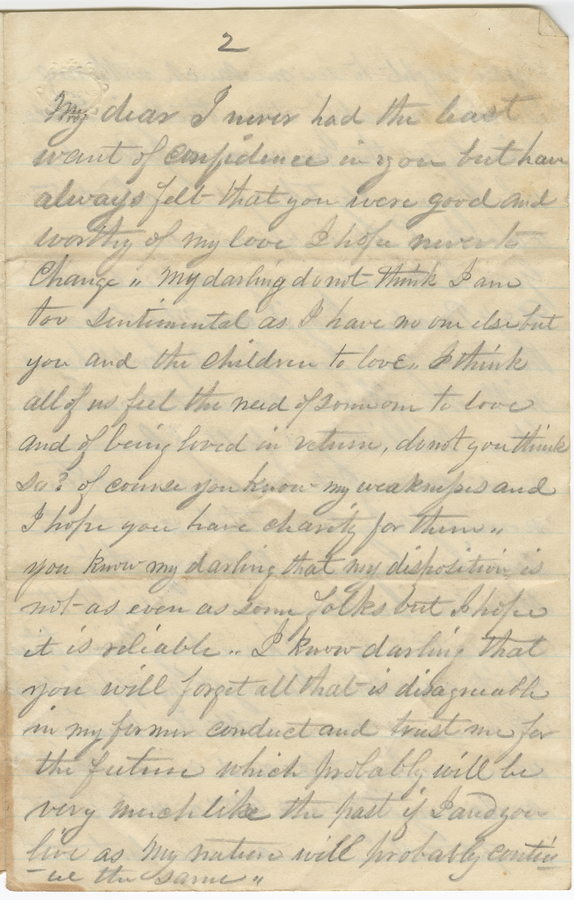 2
My dear I never had the least
want of confidence in you but have
always felt that you were good and
worthy of my love I hope never to
Change " My darling do not think I am
too sentimental as I have no one else but
you and the children to love " I think
all of us feel the need of some one to love
and of being loved in return, do not you think
so? of course you know my weaknesses and
I hope you have charity for them "
you know my darling that my disposition is
not as even as some folks but I hope
it is reliable " I know darling that
you will forget all that is disagreeable
in my former conduct and trust me for
the future which probably will be
very much like the past if I and you
live as my nature will probably contin
-ue the same "